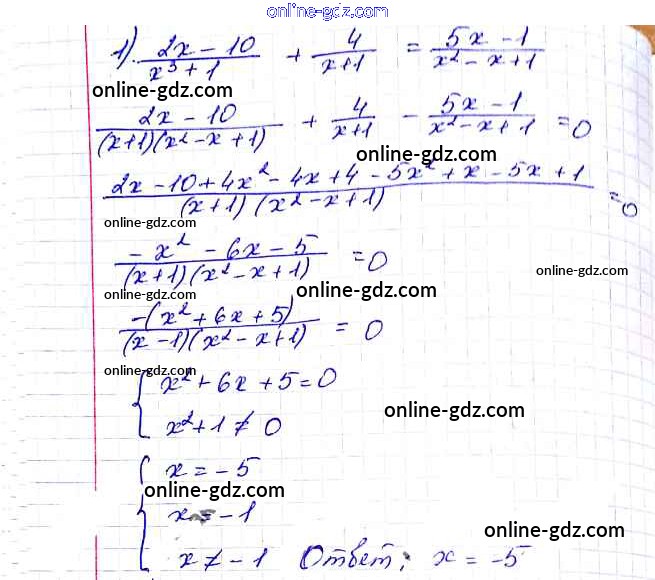 online-gdz.com
1) (2x - 10)/(x³ + 1) + 4/(x+1) = (5x - 1)/(x² - x + 1)
online-gdz.com
(2x - 10)/((x+1)(x² - x + 1)) + 4/(x+1) - (5x - 1)/(x² - x + 1) = 0
online-gdz.com
(2x - 10 + 4x² - 4x + 4 - 5x² + x - 5x + 1)/((x+1)(x² - x + 1)) = 0
online-gdz.com
(- x² - 6x - 5)/((x+1)(x² - x + 1)) = 0
online-gdz.com
online-gdz.com
online-gdz.com
(-(x² + 6x + 5))/((x-1)(x² - x + 1)) = 0
online-gdz.com
{ x² + 6x + 5 = 0
online-gdz.com
x² + 1 ≠ 0
{ x = -5
online-gdz.com
x = -1
online-gdz.com
x ≠ -1 Ответ: x = -5